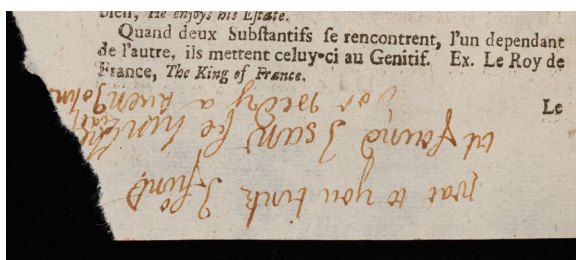 bien, He enjoys his Estate.
Quand deux Subſtantifs ſe rencontrent, l'un dependant
de l'autre, ils mettent celuy-ci au Genitif. Ex. Le Roy de
France, The King of France.
Le
wat to you tink I find
found I
a John